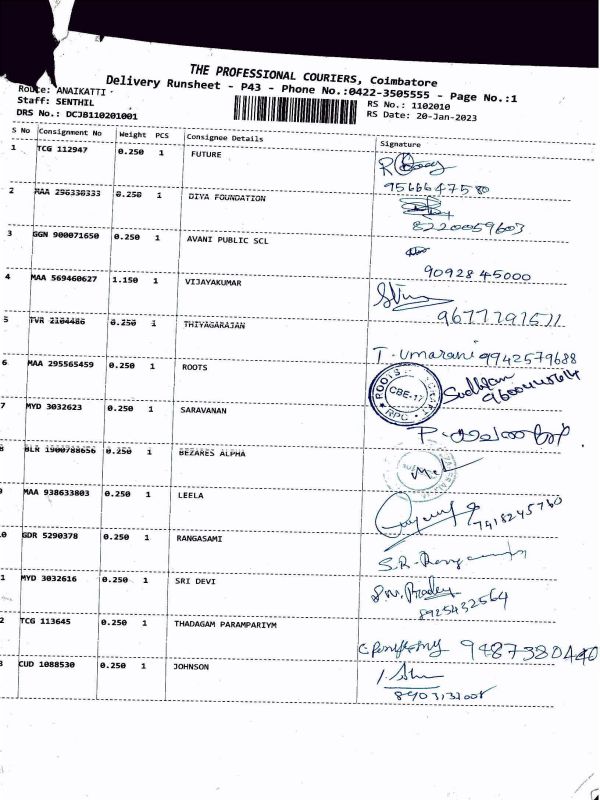 THE PROFESSIONAL COURIERS, Coimbatore
Delivery Runsheet - P43 - Phone No.:0422-3505555 - Page No.:1
Route: ANAIKATTI
Staff: SENTHIL
RS No.: 1102010
DRS No.: DCJB110201001
RS Date: 20-Jan-2023
S No Consignment No Weight PCS Consignee Details Signature
1 TCG 112947 0.250 1 FUTURE
9566647580
2 MAA 296330333 0.250 1 DIYA FOUNDATION
8220059603
3 GGN 900071650 0.250 1 AVANI PUBLIC SCL
9092845000
4 MAA 569460627 1.150 1 VIJAYAKUMAR
5 TVR 2104486 0.250 1 THIYAGARAJAN
T. Umarani 9942579688
6 MAA 295565459 0.250 1 ROOTS
ROOTS CBE-17 NPC
7 MYD 3032623 0.250 1 SARAVANAN
8 BLR 1900788656 0.250 1 BEZARES ALPHA
9 MAA 938633803 0.250 1 LEELA
7418245760
0 GDR 5290378 0.250 1 RANGASAMI
1 MYD 3032616 0.250 1 SRI DEVI
8925432564
2 TCG 113645 0.250 1 THADAGAM PARAMPARIYM
9487380440
3 CUD 1088530 0.250 1 JOHNSON